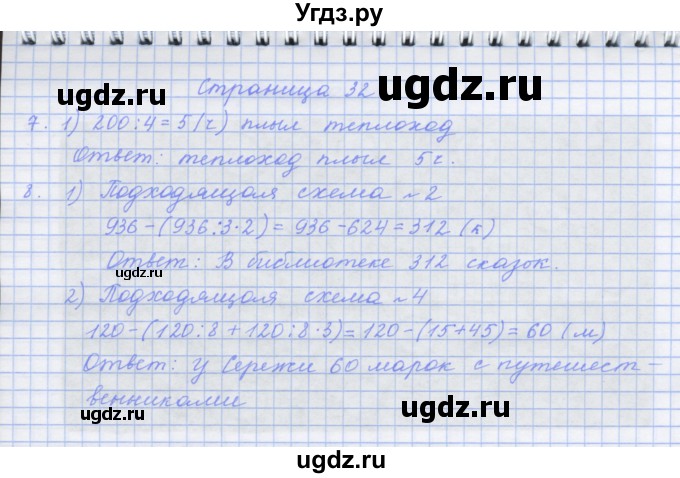 Угдз.ру
Страница 32
7. 1) 200:4=5(ч) плыл теплоход
Ответ: теплоход плыл 5ч.
8. 1) Подходящая схема №2
936-(936:3·2)=936-624=312 (к)
Ответ: В библиотеке 312 сказок.
2) Подходящая схема №4
120-(120:8+120:8·3)=120-(15+45)=60 (м)
Ответ: у Сережи 60 марок с путешест-
венниками
ugdz.ru
ugdz.ru
ugdz.ru
ugdz.ru
ugdz.ru
ugdz.ru
ugdz.ru
ugdz.ru